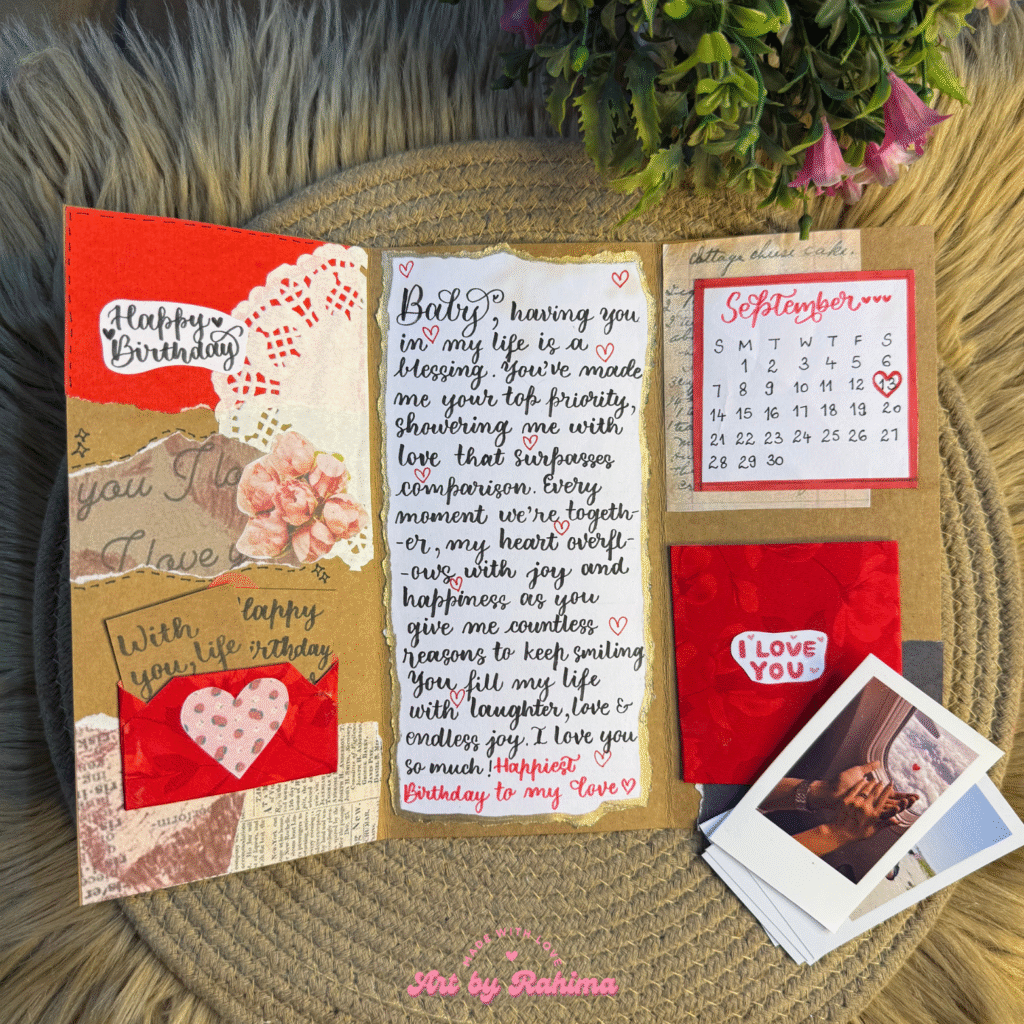 Happy
Birthday
you I lo
I love
With
you, life
lappy
irthday
Baby, having you
in my life is a
blessing. You've made
me your top priority,
showering me with
love that surpasses
comparison. Every
moment we're togeth-
-er, my heart overfl-
-ows with joy and
happiness as you
give me countless
reasons to keep smiling
You fill my life
with laughter, love &
endless joy. I love you
so much! Happiest
Birthday to my love
cottage cheese cake.
September
S M T W T F S
1 2 3 4 5 6
7 8 9 10 11 12 13
14 15 16 17 18 19 20
21 22 23 24 25 26 27
28 29 30
I LOVE
YOU
MADE WITH LOVE
Art by Rahima